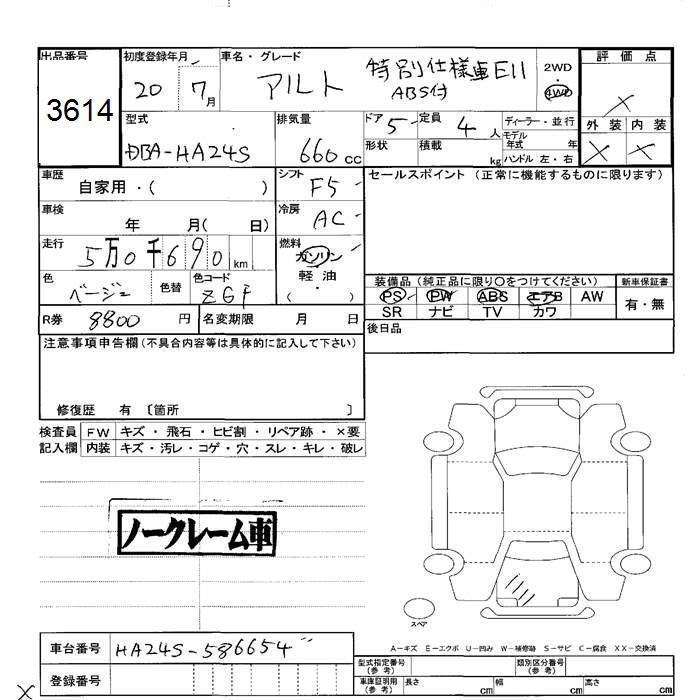 出品番号 初度登録年月 車名・グレード 評価点
3614 20 7月 アルト 特別仕様車EII ABS付 2WD・4WD ×
外装 内装
× ×
型式 排気量 ドア 5 定員 4人 ディーラー・並行
DBA-HA24S 660cc 形状 積載 kg モデル年式 年
ハンドル 左・右
車歴 自家用・( ) シフト F5 セールスポイント (正常に機能するものに限ります)
車検 年 月( 日) 冷房 AC
走行 5万0千690km 燃料 ガソリン・軽油・( )
色 ベージュ 色替 色コード ZGF
装備品 (純正品に限り○をつけてください) 新車保証書
PS PW ABS エアB AW 有・無
SR ナビ TV カワ
R券 8800円 名変期限 月 日 後日品
注意事項申告欄(不具合内容等は具体的に記入して下さい)
修復歴 有 〔箇所 〕
検査員 FW キズ・飛石・ヒビ割・リペア跡・×要
記入欄 内装 キズ・汚レ・コゲ・穴・スレ・キレ・破レ
ノークレーム車
スペア
A-キズ E-エクボ U-凹み W-補修跡 S-サビ C-腐食 XX-交換済
車台番号 HA24S-586654
登録番号
型式指定番号(参考) 類別区分番号(参考)
車庫証明用(参考) 長さ cm 幅 cm 高さ cm
×